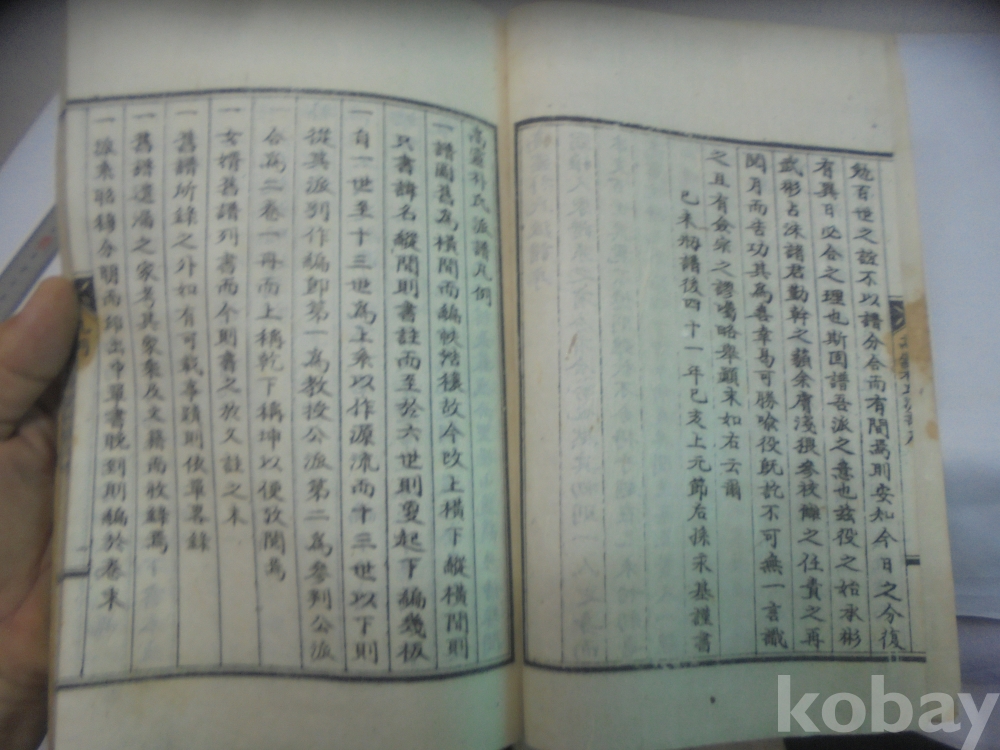 勉百世之誼不以譜分合而有間焉則安知今日之分復
有異日必合之理也斯固譜吾派之意也玆役之始承彬
武彬占洙譜君勤幹之藐余膚淺猥參校讎之任責之再
閱月而告功其爲喜幸曷可勝喩役旣訖不可無一言識
之且有僉宗之謬囑略擧顚末如右云爾
己未狗譜後四十一年己亥上元節右孫永基謹書
高靈朴氏派譜凡例
一譜圖舊爲橫間而編帙浩穰故今改上橫下縱橫間則
只書諱名縱間則書註而至於六世則更起下編幾板
一自一世至十三世爲上系以作源流而十三世以下則
從其派別作編卽第一爲敎授公派第二爲參判公派
合爲二卷一冊而上稱乾下稱坤以便攷閱焉
一女婿舊譜列書而今則書之於父註之末
一舊譜所錄之外如有可載事蹟則依單畧錄
一舊譜遺漏之家考其家乘及文籍而收錄焉
一派系昭穆分明而
單書晚到則編於卷末
kobay